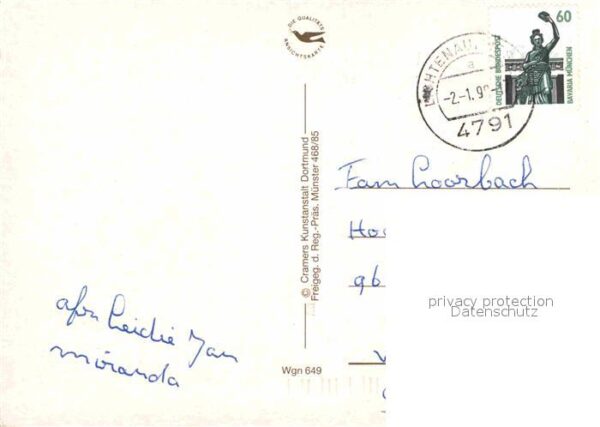 DIE QUALITÄTS
ANSICHTSKARTE
60
DEUTSCHE BUNDESPOST
BAVARIA MÜNCHEN
LICHTENAU
a
-2.-1.9
4791
© Cramers Kunstanstalt Dortmund
Freigeg. d. Reg.-Präs. Münster 468/85
Fam
Ho
96
privacy protection
Datenschutz
afz. Heidie Jan
miranda
Wgn 649